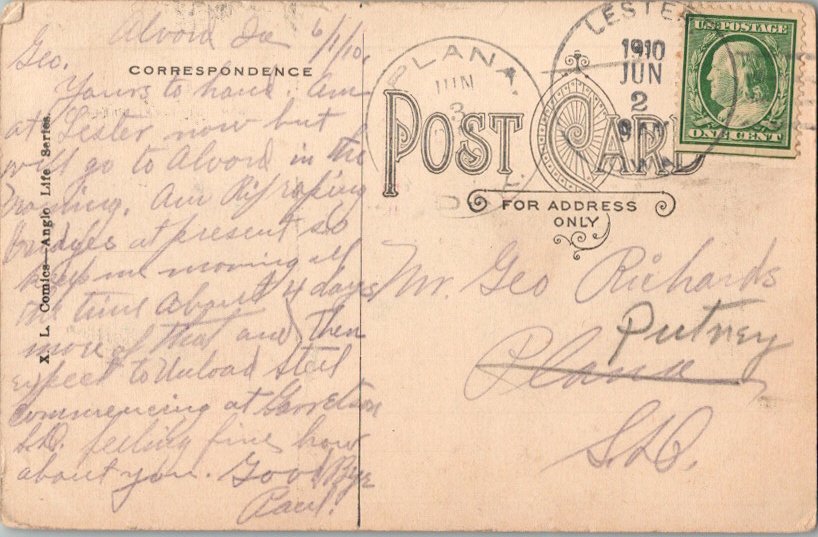 Alvord Ia 6/1/10.
Geo.
CORRESPONDENCE
Yours to hand. Am
at Lester now but
will go to Alvord in the
morning. Am Rip raping
bridges at present so
keep me moving all
the time about 4 days
more of that and then
expect to unload steel
commencing at Garretson
S.D. feeling fine how
about you. Good Bye
Paul.
X. L. Comics—Anglo Life Series.
PLANA,
JUN
3
LESTER
1910
JUN
2
9 AM
U.S. POSTAGE
ONE CENT
POST CARD
FOR ADDRESS
ONLY
Mr. Geo Richards
Putney
Plana
S.D.